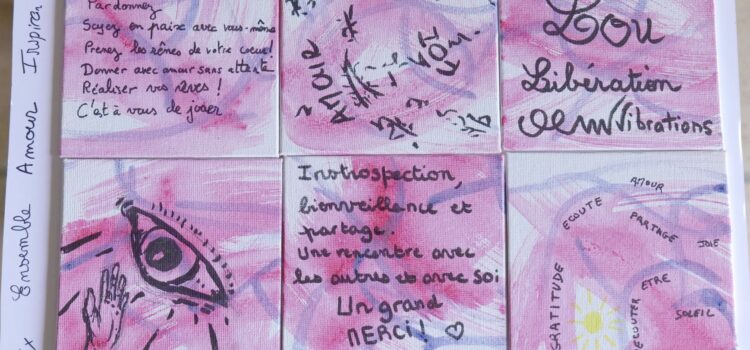 Pardonnez
Soyez en paix avec vous-même
Prenez les rênes de votre coeur!
Donner avec amour sans attente
Réaliser vos rêves !
C'est à vous de jouer
AMOUR
TOI
Lou
Libération
Vibrations
Instrospection,
bienveillance et
partage.
Une rencontre avec
les autres et avec soi
Un grand
MERCI! ♡
AMOUR
ECOUTE
PARTAGE
JOIE
GRATITUDE
ECOUTER
ETRE
SOLEIL
Ensemble Amour Inspirer